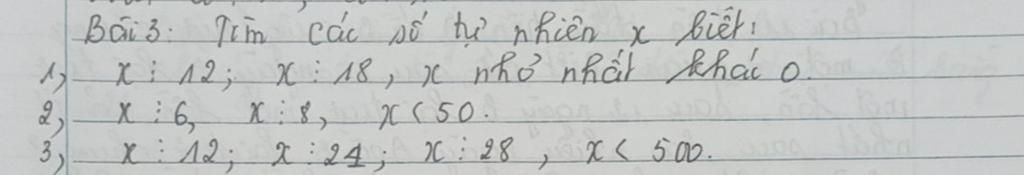 Bài 3: Tìm các số tự nhiên x biết:
1, x ⋮ 12; x ⋮ 18, x nhỏ nhất khác 0.
2, x ⋮ 6, x ⋮ 8, x < 50.
3, x ⋮ 12; x ⋮ 24; x ⋮ 28, x < 500.